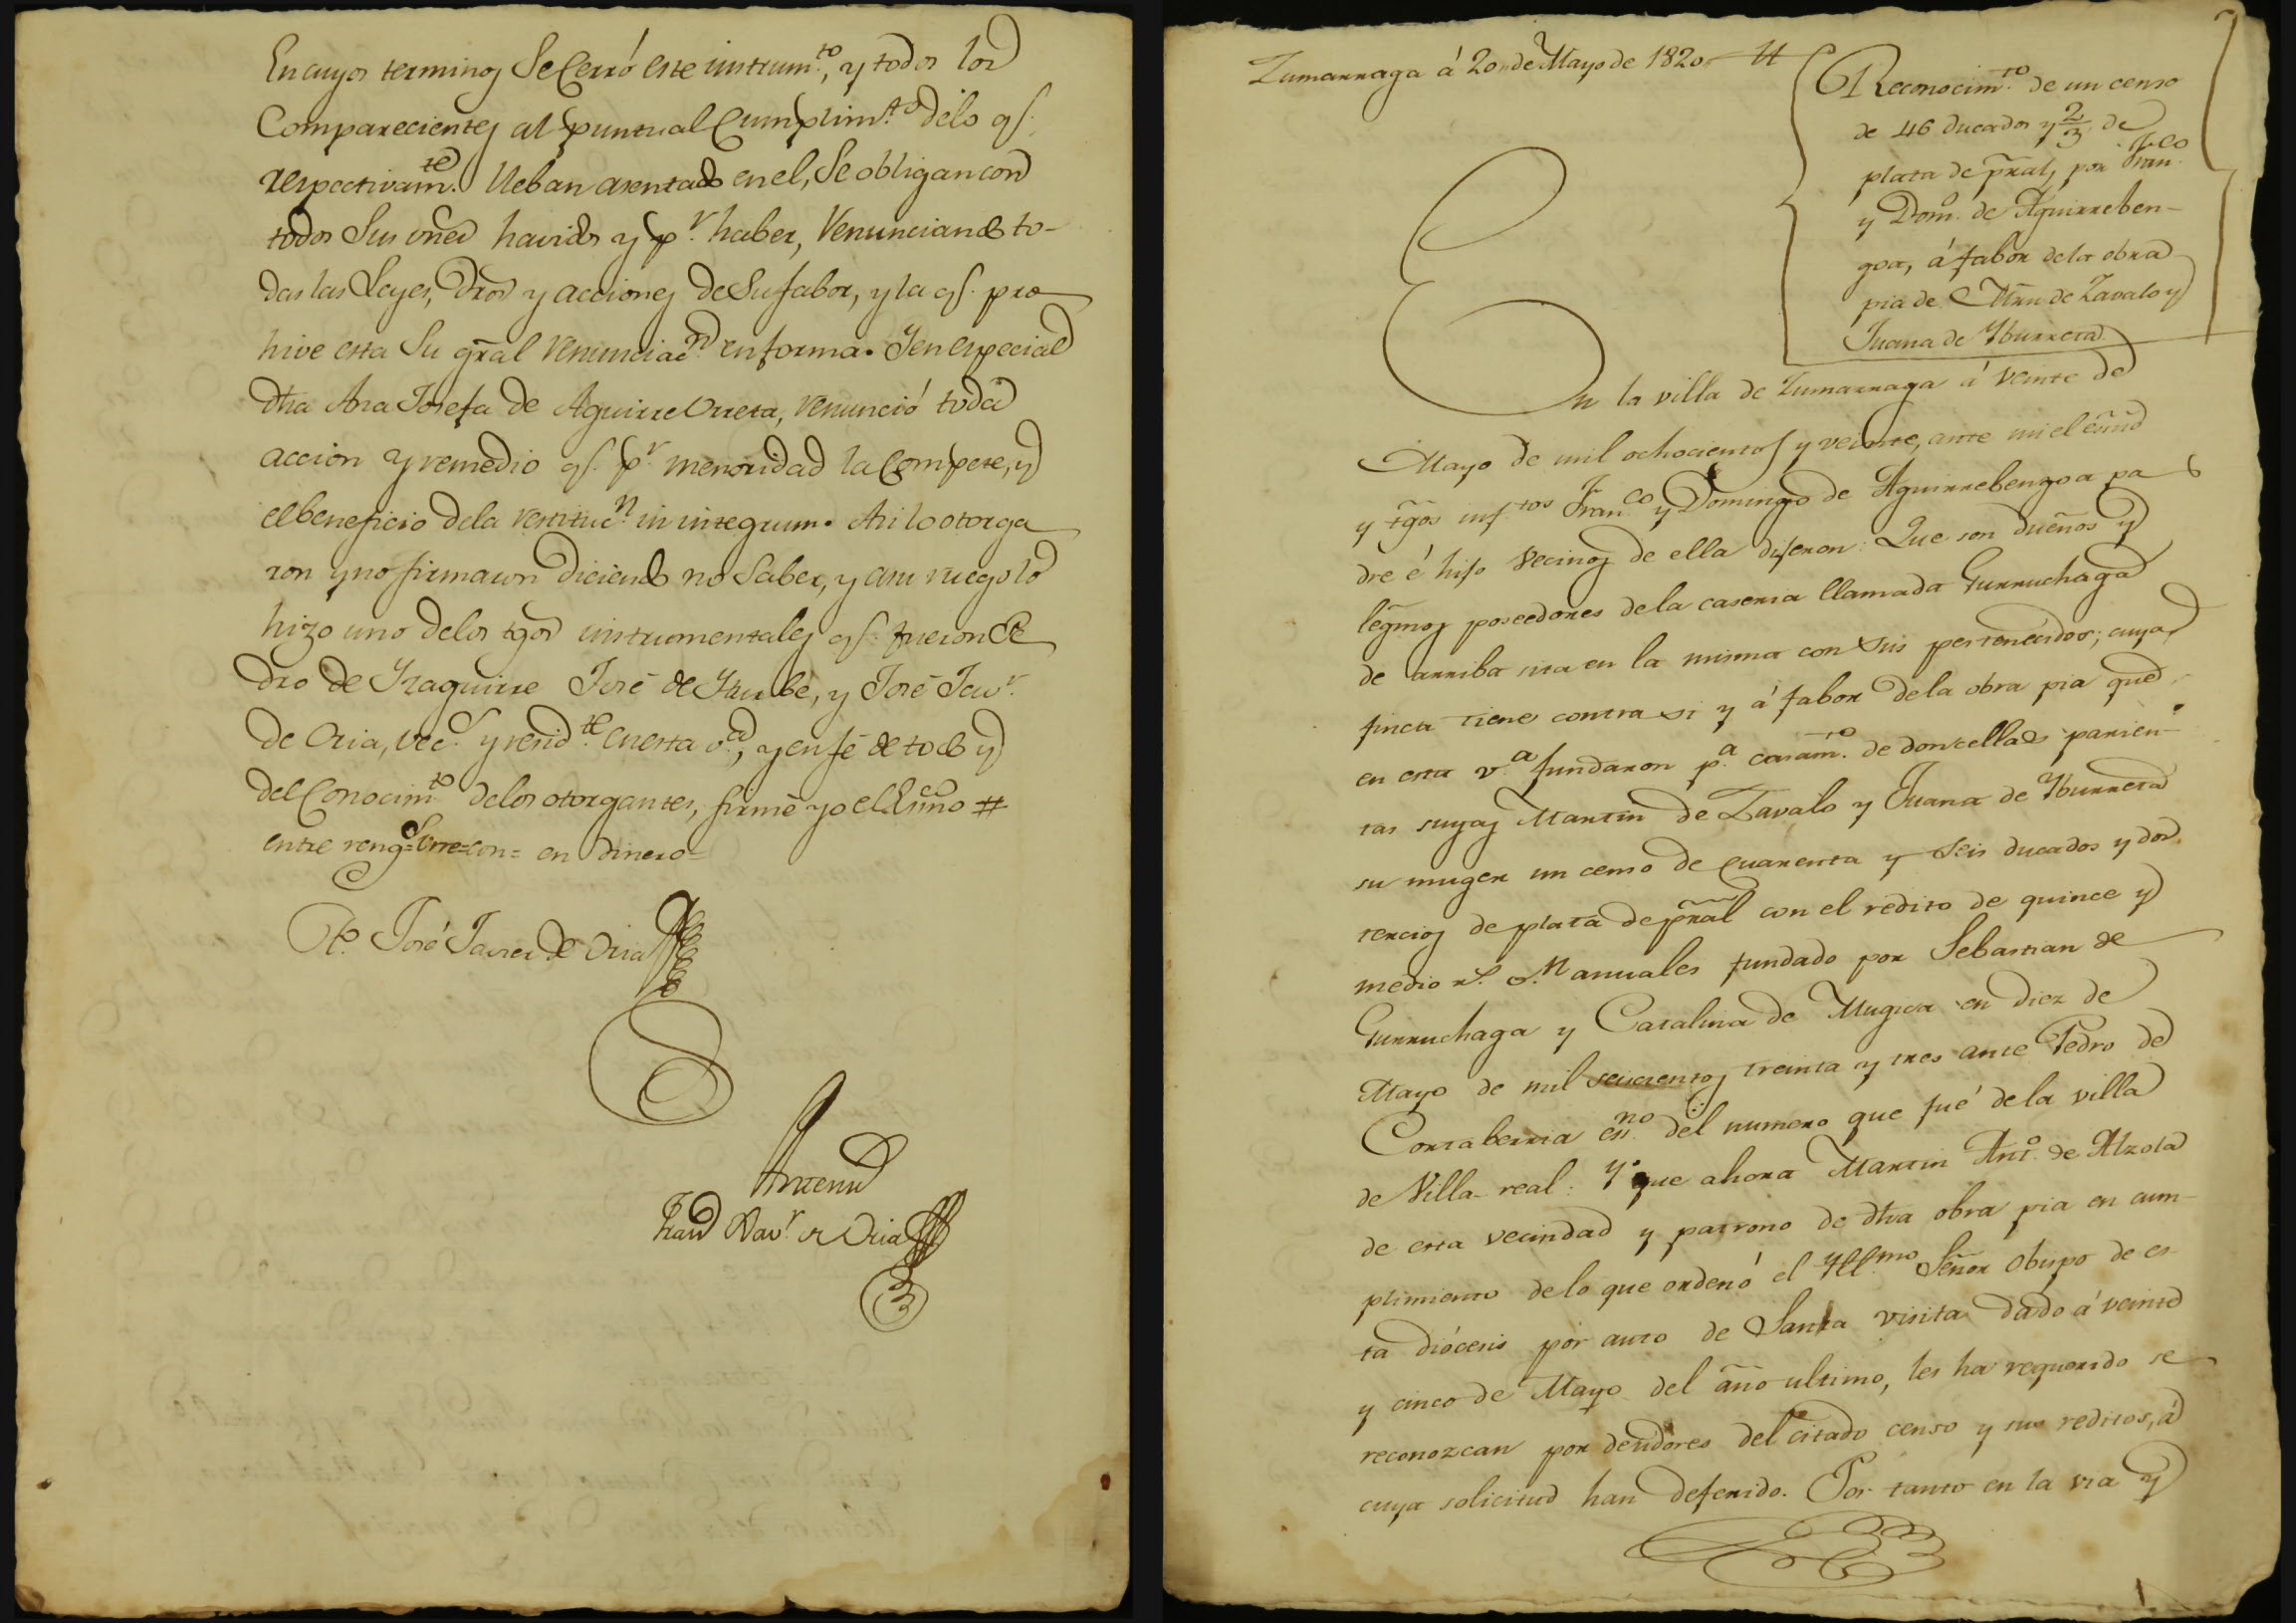 En cuyos terminos Se Cerró este instrum.to, y todos los
Comparecientes al puntual Cumplim.to delo q.e
respectivam.te lleban asentado en el, Se obligan con
todos Sus vñes havidos y p.r haber, Renunciando to-
das las Leyes, Dros y acciones de Su fabor, y la q.e pro
hive esta Su gral renunciac.n en forma. Y en especial
dha Ana Josefa de Aguirre Urreta, renunció toda
accion y remedio q.e p.r menoridad la Compete, y
el beneficio dela restituc.n in integrum. Asi lo otorga
ron y no firmaron diciendo no Saber, y a su ruego lo
hizo uno delos tgos instrumentales q.e fueron Pe
dro de Yzaguirre José de Yturbe, y José Jav.r
de Oria, vec.s y resid.te en esta v.a, y en fé de todo y
del Conocim.to delos otorgantes, firmé yo el Esnno #
entre reng.s = Urre = con = en dinero =
T.o José Javier de Oria
Antemi
Fran.co Xav.r de Oria
Zumarraga á 20 de Mayo de 1820 #
Reconocim.to de un censo
de 46 ducados y 2/3 de
plata de pral, por Fran.co
y Dom.o de Aguirreben-
goa, á fabor dela obra
pia de Mrn de Zavalo y
Juana de Yburreta
En la villa de Zumarraga á veinte de
Mayo de mil ochocientos y veinte, ante mi el esñno
y tgos inf.tos Fran.co y Domingo de Aguirrebengoa pa
dre é hijo vecinos de ella dijeron: Que son dueños y
legmos poseedores dela caseria llamada Gurruchaga
de arriba sita en la misma con sus pertenecidos; cuya
finca tiene contra si y á fabor dela obra pia que
en esta v.a fundaron p.a casam.to de doncellas parien-
tas suyas Martin de Zavalo y Juana de Yburreta
su muger un censo de cuarenta y seis ducados y dos
tercios de plata de pral con el redito de quince y
medio r.s v.n anuales fundado por Sebastian de
Gurruchaga y Catalina de Mugica en diez de
Mayo de mil seiscientos treinta y tres ante Pedro de
Cortaberria es.no del numero que fué dela villa
de Villa-real: Y que ahora Martin Ant.o de Alzola
de esta vecindad y patrono de dha obra pia en cum-
plimiento delo que ordenó el Yll.mo Señor Obispo de es-
ta diócesis por auto de Santa visita dado á veinte
y cinco de Mayo del año ultimo, les ha requerido se
reconozcan por deudores del citado censo y sus reditos, á
cuya solicitud han deferido. Por tanto en la via y